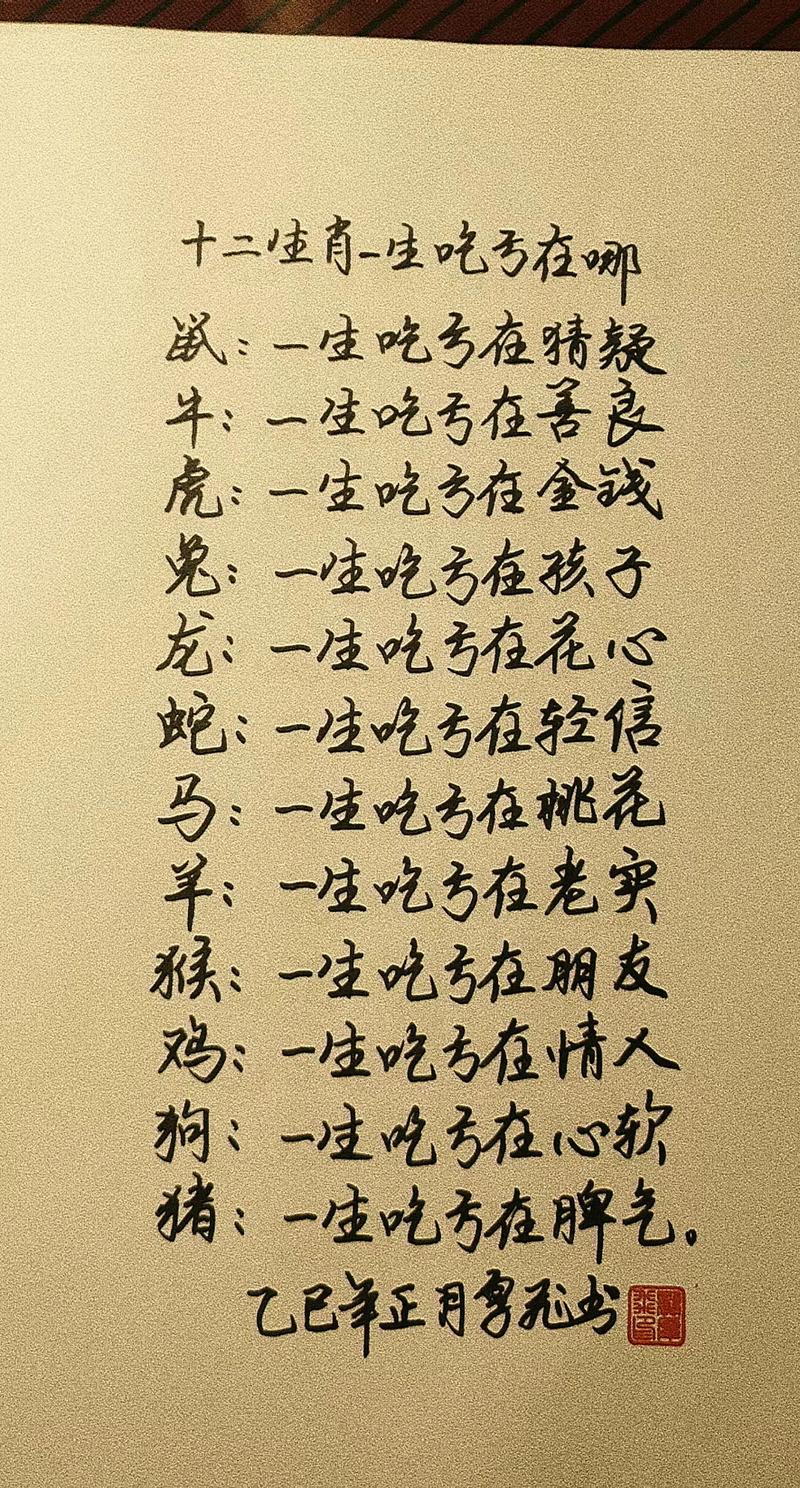 十二生肖一生吃亏在哪
鼠：一生吃亏在猜疑
牛：一生吃亏在善良
虎：一生吃亏在金钱
兔：一生吃亏在孩子
龙：一生吃亏在花心
蛇：一生吃亏在轻信
马：一生吃亏在桃花
羊：一生吃亏在老实
猴：一生吃亏在朋友
鸡：一生吃亏在情人
狗：一生吃亏在心软
猪：一生吃亏在脾气。
乙巳年正月 书